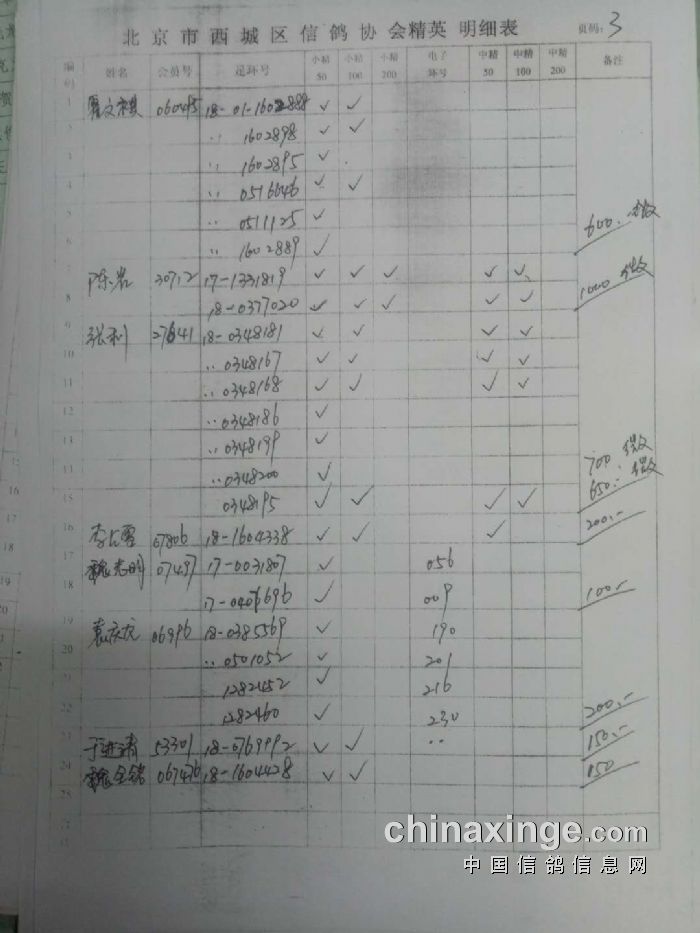 北京市西城区信鸽协会精英 明细表 页码: 3
编码 姓名 会员号 足环号 小精50 小精100 小精200 电子环号 中精50 中精100 中精200 备注
1 060485 18-01-1602888 ✓ ✓
2 〃 1602898 ✓ ✓
3 〃 1602895 ✓
4 〃 0516646 ✓ ✓
5 〃 0511125 ✓
6 〃 1602889 ✓ 600.
7 陈岩 30712 17-1331819 ✓ ✓ ✓ ✓ ✓
8 18-0377020 ✓ ✓ ✓ ✓ ✓ 1000
9 张利 27641 18-0348181 ✓ ✓ ✓ ✓
10 〃 0348167 ✓ ✓ ✓ ✓
11 〃 0348168 ✓ ✓ ✓ ✓
12 〃 0348186 ✓
13 〃 0348199 ✓
〃 0348200 ✓ 700.
15 0348195 ✓ ✓ ✓ ✓ 650.-
16 07806 18-1604338 ✓ ✓ ✓ 200.-
17 魏志明 07497 17-0031807 ✓ 056
18 ✓ 009 100.-
19 袁庆龙 06996 18-0385569 ✓ 190
20 〃 0501052 ✓ 201
21 1282452 ✓ 216
22 1282460 ✓ 230 200.-
23 于进清 53301 18-0769992 ✓ ✓ 〃 150.-
24 067476 18-1604428 ✓ ✓ 150
25
chinaxinge.com
中国信鸽信息网